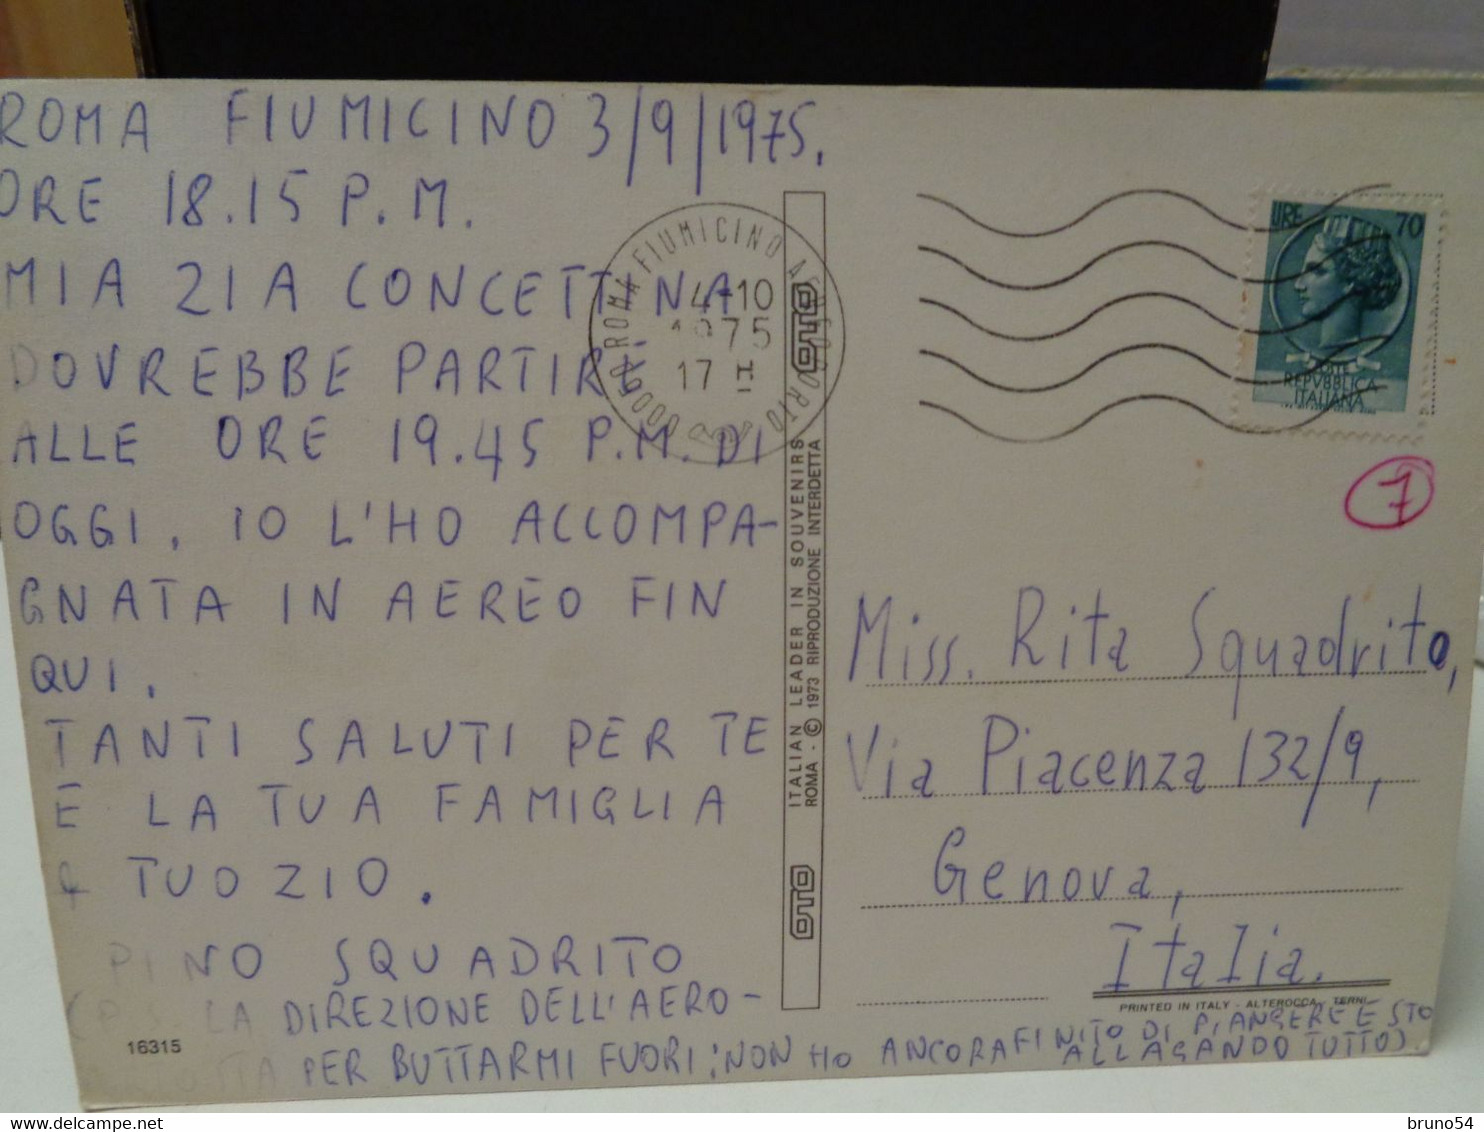 ROMA FIUMICINO 3/9/1975.
ORE 18.15 P.M.
MIA ZIA CONCETTINA
DOVREBBE PARTIRE
ALLE ORE 19.45 P.M. DI
OGGI. IO L'HO ACCOMPA-
GNATA IN AEREO FIN
QUI.
TANTI SALUTI PER TE
E LA TUA FAMIGLIA
TUO ZIO.
PINO SQUADRITO
(P.S. LA DIREZIONE DELL'AERO-
PER BUTTARMI FUORI: NON HO ANCORA FINITO DI PIANGERE E STO
ALLAGANDO TUTTO).
16315
00060 ROMA FIUMICINO AEROPORTO
4-10
1975
17 H
OTO
ITALIAN LEADER IN SOUVENIRS
ROMA - © 1973 RIPRODUZIONE INTERDETTA
OTO
LIRE 70
POSTE
REPVBBLICA
ITALIANA
7
Miss. Rita Squadrito,
Via Piacenza 132/9,
Genova,
Italia.
PRINTED IN ITALY - ALTEROCCA - TERNI
delcampe.net
bruno54